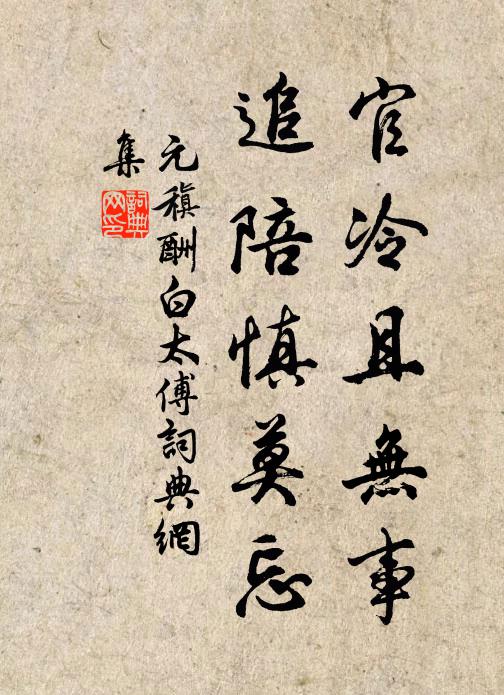 官冷且無事
追陪慎莫忘
元稹酬白太傅詞典網
集
詞典
网印